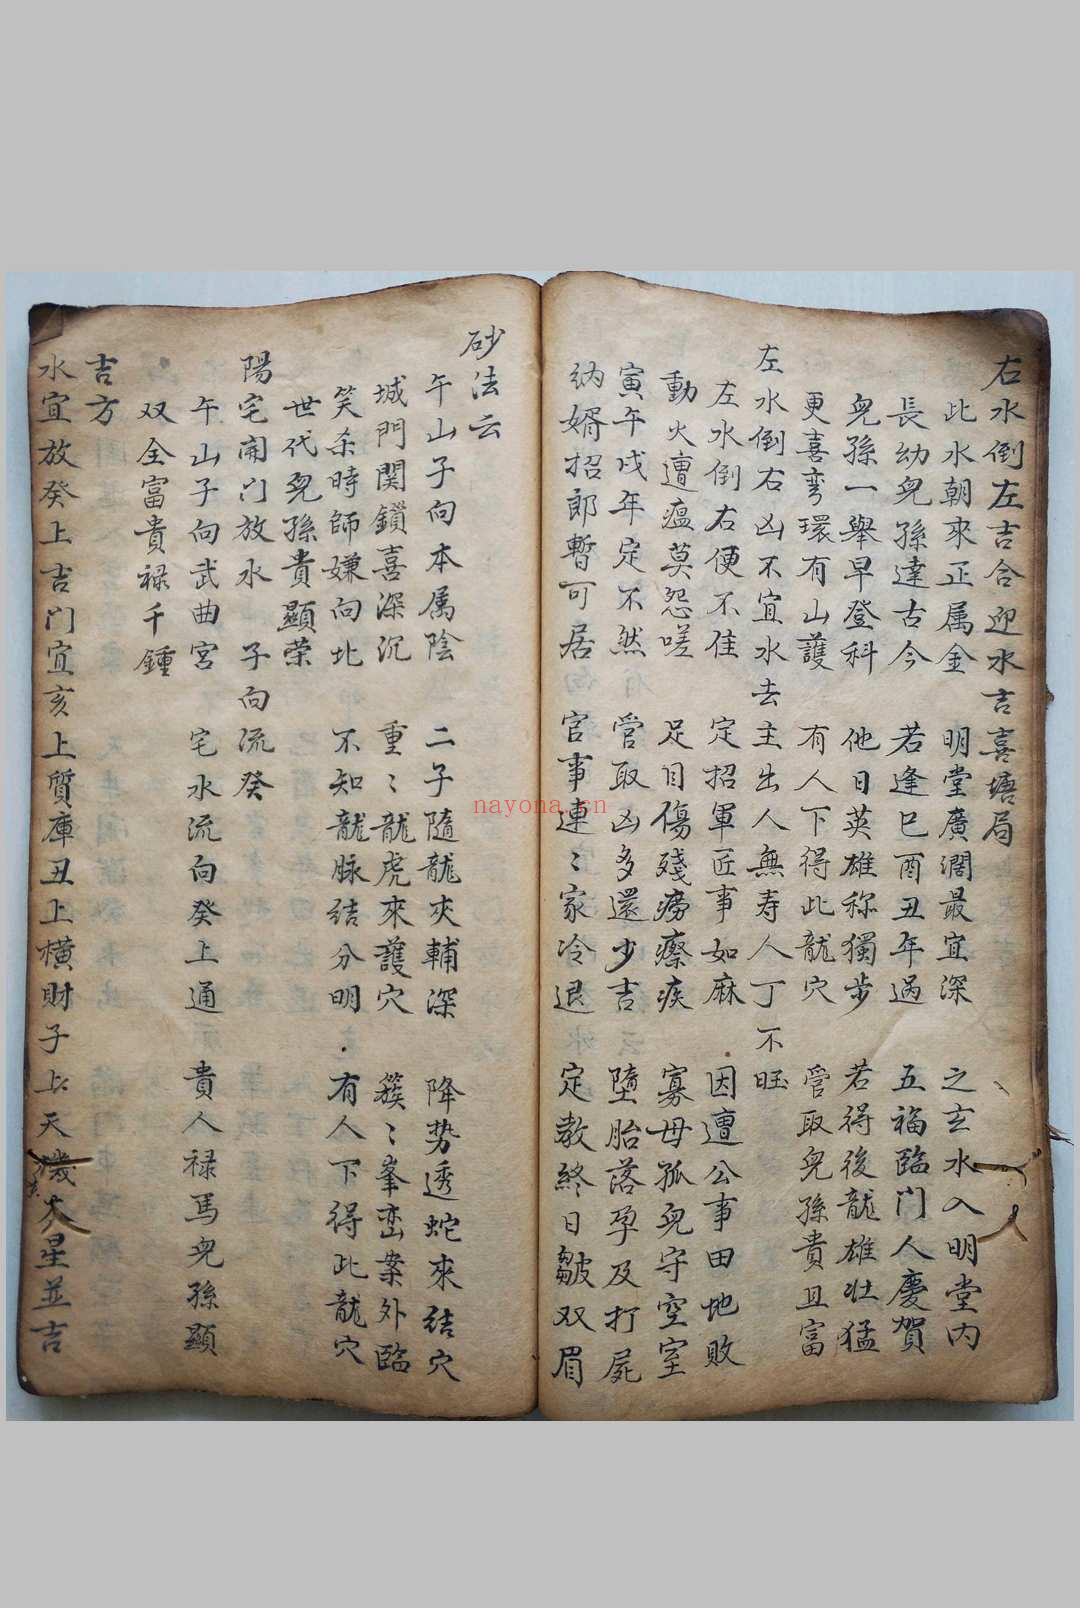 右水倒左吉合迎水吉喜塘局
此水朝來正属金 明堂廣濶最宜深 之玄水入明堂内
長幼兒孫達古今 若逢巳酉丑年過 五福臨门人慶賀
兒孫一舉早登科 他日英雄称獨步 若得後龍雄壮猛
更喜弯環有山護 有人下得此龍穴 管取兒孫貴且富
左水倒右凶不宜水去主出人無寿人丁不旺
左水倒右便不佳 定招軍匠事如麻 因遭公事田地敗
動火遭瘟莫怨嗟 足目傷殘癆瘵疾 寡母孤兒守空室
寅午戌年定不然 管取凶多還少吉 墮胎落孕及打屍
纳婿招郎暫可居 官事連〻家冷退 定教終日皺双眉
砂法云
午山子向本属陰 二子隨龍夾輔深 降势透蛇來結穴
城門関鎖喜深沉 重〻龍虎來護穴 簇〻峯峦案外臨
笑杀時師嫌向北 不知龍脉结分明 有人下得此龍穴
世代兒孫貴顯荣
陽宅開门放水 子向流癸
午山子向武曲宮 宅水流向癸上通 貴人禄馬兒孫顯
双全富貴禄千鍾
吉方
水宜放癸上吉门宜亥上質庫丑上横財子上天機大星並吉
nayona.cn